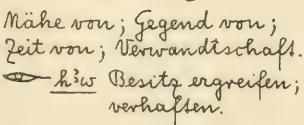 Nähe von; Gegend von;
Zeit von; Verwandtschaft.
h³w Besitz ergreifen;
verhaften.